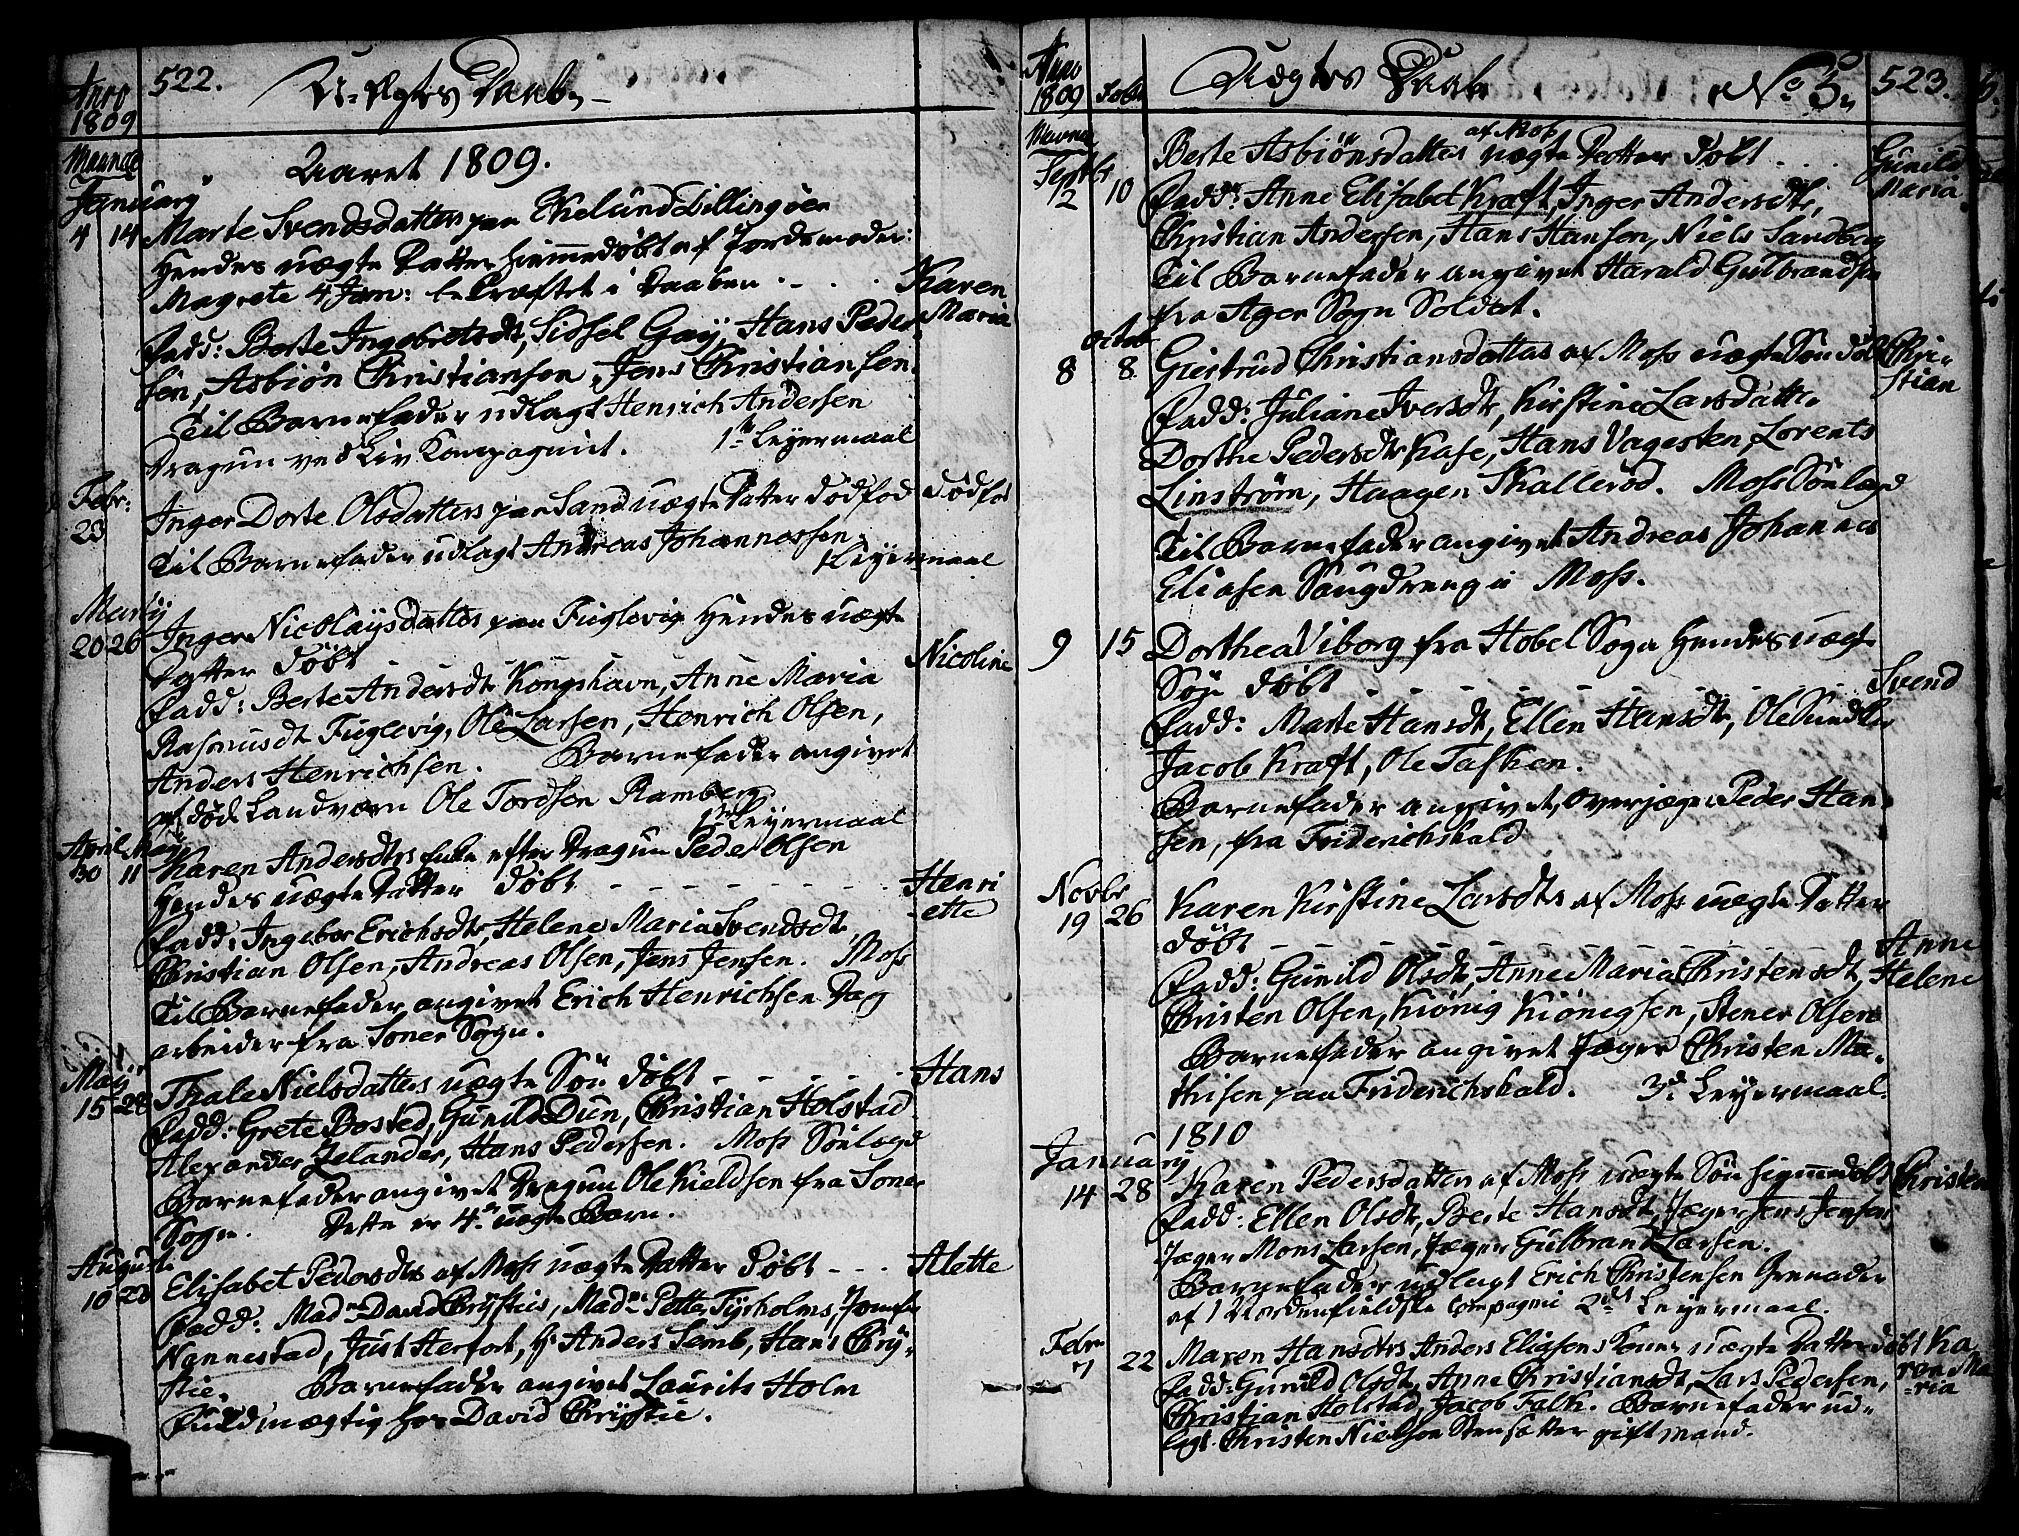 Anno
1809
522.
U-Ægte Daab
Maaned
Aaret 1809.
January
4 14 Marte Svendsdatters paa Ekelund Dillingøen
Hendes uægte Datter hiemmedøbt af Jordemoder
Magrete 4 Jan: bekræftet i Daaben . . . Karen
Maria
Fadd: Berte Ingebretsdt, Sidsel Gaÿ, Hans Peder
sen, Asbiøn Christiansen, Jens Christiansen.
Til Barnefader udlagt Henrich Andersen
Dragun ved Liv Kompagniet. 1te Leyermaal
Febr:
23 Inger Dorte Olsdatters paa Sand uægte Datter dødfød dødfød
Til Barnefader udlagt Andreas Johannessen
1 Leyermaal
Martÿ
20 26 Inger Nicolaÿsdatters paa Fuglevig Hendes uægte
Datter døbt - - - - - Nicoline
Fadd: Berte Andersdt Kongshavn, Anne Maria
Rasmusdt Fuglevig, Ole Larsen, Henrich Olsen,
Anders Henrichsen. Barnefader angivet
afdød Landværn Ole Tordsen Ramberg
1te Leyermaal
April May
30 11 Karen Andersdtrs Enke efter Dragun Peder Olsen
Hendes uægte Datter døbt - - - - - - - Henri
ette
Fadd: Ingebor Erichsdtr, Helene Maria Svendsdt,
Christian Olsen, Andreas Olsen, Jens Jensen. Moss
Til Barnefader angivet Erich Henrichsen Dag
arbeider fra Soner Sogn.
Maÿ
15 28 Thale Nielsdatters uægte Søn døbt - - - - Hans
Fadd: Grete Bosted, Gunild Dun, Christian Holstad
Alexander Zelander, Hans Pedersen. Moss Sønlagd
Barnefader angivet Dragun Ole Kieldsen fra Soner
Sogn. Dette er 4de uægte Barn.
August
10 22 Elisabet Pedersdtrs af Moss uægte Datter døbt - - - Alette
Fadd: Mad David Chrÿsties, Mad Petter Tÿrholms, Jomfru
Nannestad, Just Herfort, Hr Anders Semb, Hans Chrÿ-
stie. Barnefader angivet Laurits Holm
Fuldmægtig hos David Chrÿstie.
Anno
1809 døbt
Uægte Daab No 5 523.
Maaned
Septbr
2 10 Berte Asbiønsdatters af Moss uægte Datter døbt . . . Gunild
Maria
Fadd: Anne Elisabet Kraft, Inger Andersdtr,
Christian Andersen, Hans Hansen, Niels Sandberg
Til Barnefader angivet Harald Gulbrandsen
fra Ager Sogn Soldat.
Octob
8 8 Giertrud Christiansdatters af Moss uægte Søn døbt Chri-
stian
Fadd: Juliane Iversdtr, Kirstine Larsdatter
Dorthe Pedersdtr Kase, Hans Vagesten, Lorents
Linstrøm, Haagen Skallerød. Moss Sønlagd
Til Barnefader angivet Andreas Johannes
Eliasen Saugdreng i Moss.
9 15 Dorthea Viborg fra Hobel Sogn Hendes uægte
Søn døbt - - - - - - - - Svend
Fadd: Marte Hansdt, Ellen Hansdtr, Ole Sundbye
Jacob Kraft, Ole Tasken.
Barnefader angivet, Overjæger Peder Han-
sen, fra Friderichshald
Novbr
19 26 Karen Kirstine Larsdtrs af Moss uægte Datter
døbt - - - - - - - Anne
Helene
Fadd: Gunild Olsdtr, Anne Maria Christensdt,
Christen Olsen, Kiønig Kiønigsen, Stener Olsen
Barnefader angivet Jæger Christen Ma-
thisen paa Friderichshald. 3de Leyermaal.
1810
January
14 28 Karen Pedersdatters af Moss uægte Søn hiemmedøbt Christen
Fadd: Ellen Olsdtr, Berte Hansdt, Jæger Jens Jensen
Jæger Mons Larsen, Jæger Gulbrand Larsen.
Barnefader udlagt Erich Christensen Grenader
af 1 Nordenfieldske Compagnie 2det Leyermaal.
Febr
7 22 Maren Hansdtrs Anders Eliasens Kones uægte Datter døbt Ka-
ren Ma-
ria
Fadd: Gunild Olsdt, Anne Christiansdt, Lars Pedersen,
Christian Holstad, Jacob Falk. Barnefader ud-
lagt Christen Nielsen Stensætter gift mand.